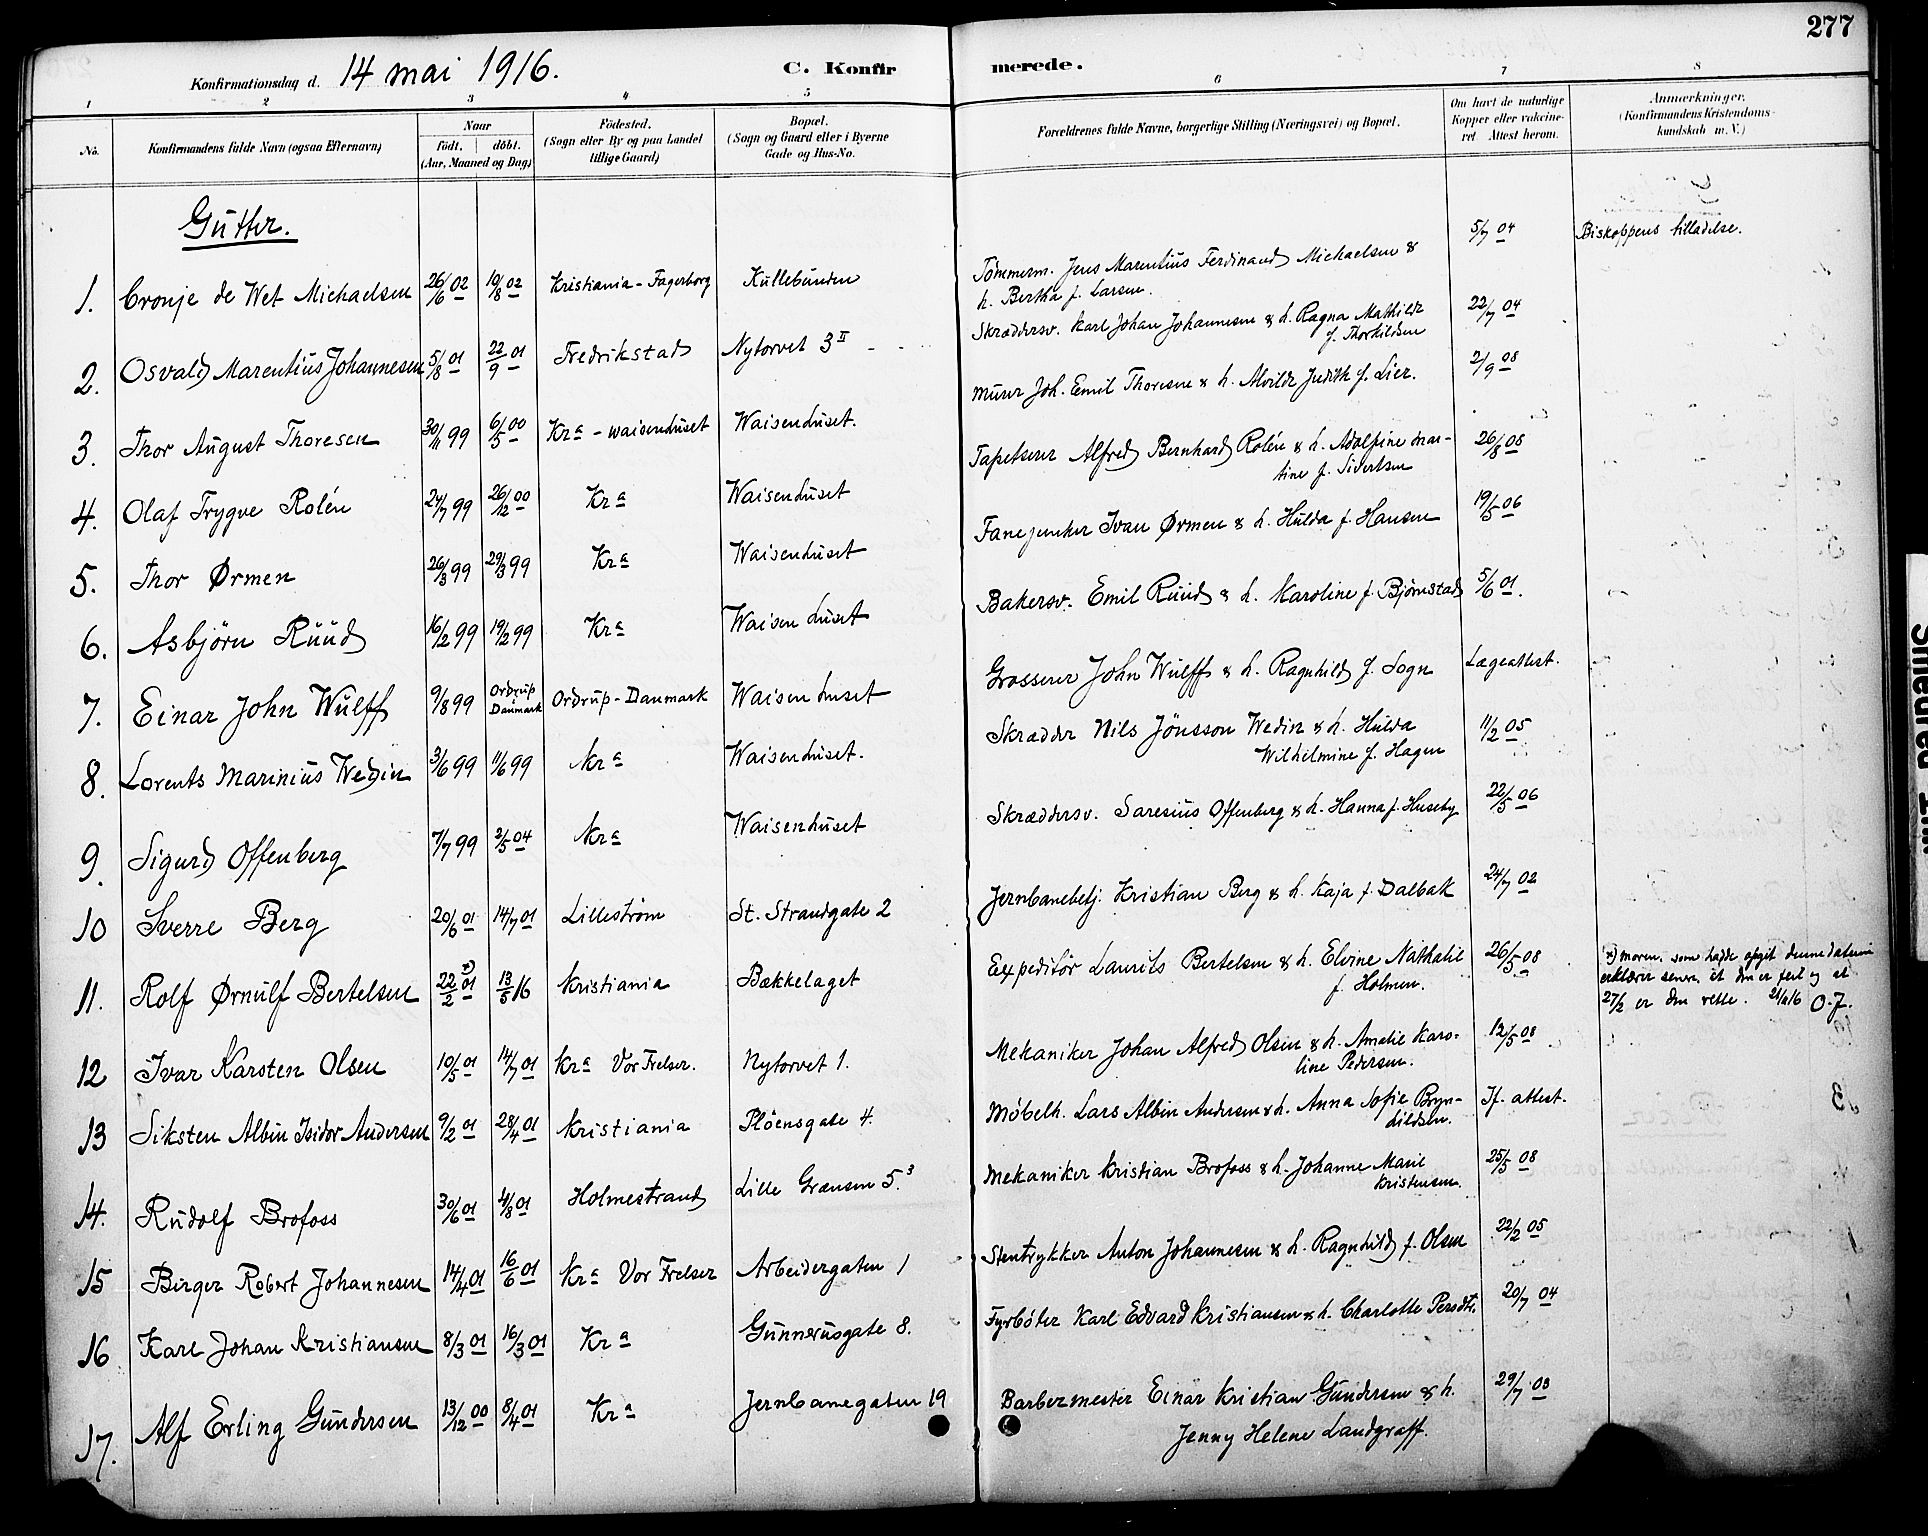 277
Konfirmationsdag d. 14 mai 1916. C. Konfirmerede.
1 2 3 4 5 6 7 8
No. Konfirmandens fulde Navn (ogsaa Efternavn) Naar født. døbt. (Aar, Maaned og Dag) Fødested. (Sogn eller By og paa Landet tillige Gaard) Bopæl. (Sogn og Gaard eller i Byerne Gade og Hus-No. Forældrenes fulde Navne, borgerlige Stilling (Næringsvei) og Bopæl. Om havt de naturlige Kopper eller vakcineret. Attest herom. Anmærkninger. (Konfirmandens Kristendomskundskab m. V.)
Gutter.
1. Cronje de Wet Michaelsen 26/6 02 10/8 02 Kristiania - Fagerborg Kullebunden Tømmerm. Jens Marentius Ferdinand Michaelsen & h. Bertha f. Larsen. 5/7 04 Biskoppens tilladelse.
2. Osvald Marentius Johannesen 5/8 01 22/9 01 Fredrikstad Nytorvet 3 II Skræddersv. Karl Johan Johannesen & h. Ragna Mathilde f. Thorkildsen 22/7 04
3. Thor August Thoresen 30/11 99 6/5 00 Kra - waisenhuset Waisenhuset. Murer Joh. Emil Thoresen & h. Alvilde Judith f. Lier. 2/9 08
4. Olaf Trygve Rolén 24/7 99 26/12 00 Kra Waisenhuset Tapetserer Alfred Bernhard Rolén & h. Adolfine Martine f. Sivertsen 26/8 08
5. Thor Ørmen 26/3 99 29/3 99 Kra Waisenhuset Fanejunker Ivan Ørmen & h. Hulda f. Hansen 19/5 06
6. Asbjörn Ruud 16/2 99 19/2 99 Kra Waisenhuset Bakersv. Emil Ruud & h. Karoline f. Bjørnstad 5/6 01.
7. Einar John Wulff 9/8 99 Ordrup Danmark Ordrup - Danmark Waisenhuset Grosserer John Wulff & h. Ragnhild f. Sogn Lægeattest.
8. Lorents Marinius Wedin 3/6 99 11/6 99 Kra Waisenhuset. Skrædder Nils Jönsson Wedin & h. Hulda Wilhelmine f. Hagen 11/2 05
9. Sigurd Offenberg 7/7 99 2/5 04 Kra Waisenhuset Skræddersv. Saresius Offenberg & h. Hanna f. Huseby 22/5 06
10 Sverre Berg 20/6 01 14/7 01 Lillestrøm St. Strandgate 2 Jernbanebetj. Kristian Berg & h. Kaja f. Dalbak 24/7 02
11. Rolf Ørnulf Bertelsen 22/2 x) 01 13/5 16 Kristiania Bækkelaget Expeditör Laurits Bertelsen & h. Elvine Nathalie f. Holmen. 26/5 08 x) moren, som hadde opgit denne datum erklærer senere at den er feil og at 27/2 er den rette. O. J.
12 Ivar Karsten Olsen 10/5 01 14/7 01 Kra Vor Frelser. Nytorvet 1. Mekaniker Johan Alfred Olsen & h. Amalie Karoline Pedersen. 12/5 08
13 Siksten Albin Isidor Andersen 9/2 01 28/4 01 Kristiania Plöensgate 4. Møbelh. Lars Albin Andersen & h. Anna Sofie Brynhildsen. If. attest.
14. Rudolf Brofoss 30/6 01 4/8 01 Holmestrand Lille Grænsen 5.3 Mekaniker Kristian Brofoss & h. Johanne Marie Kristensen. 25/5 08
15 Birger Robert Johannesen 14/4 01 16/6 01 Kra Vor Frelser Arbeidergaten 1 Stentrykker Anton Johannesen & h. Ragnhild f. Olsen 22/2 05
16 Karl Johan Kristiansen 8/3 01 16/3 01 Kra Gunnerusgate 8. Fyrbøter Karl Edvard Kristiansen & h. Charlotte Persdtr. 20/7 04
17. Alf Erling Gundersen 13/12 00 8/4 01 Kra Jernbanegaten 19 Barbermester Einar Kristian Gundersen & h. Jenny Helene Landgraff. 29/7 03